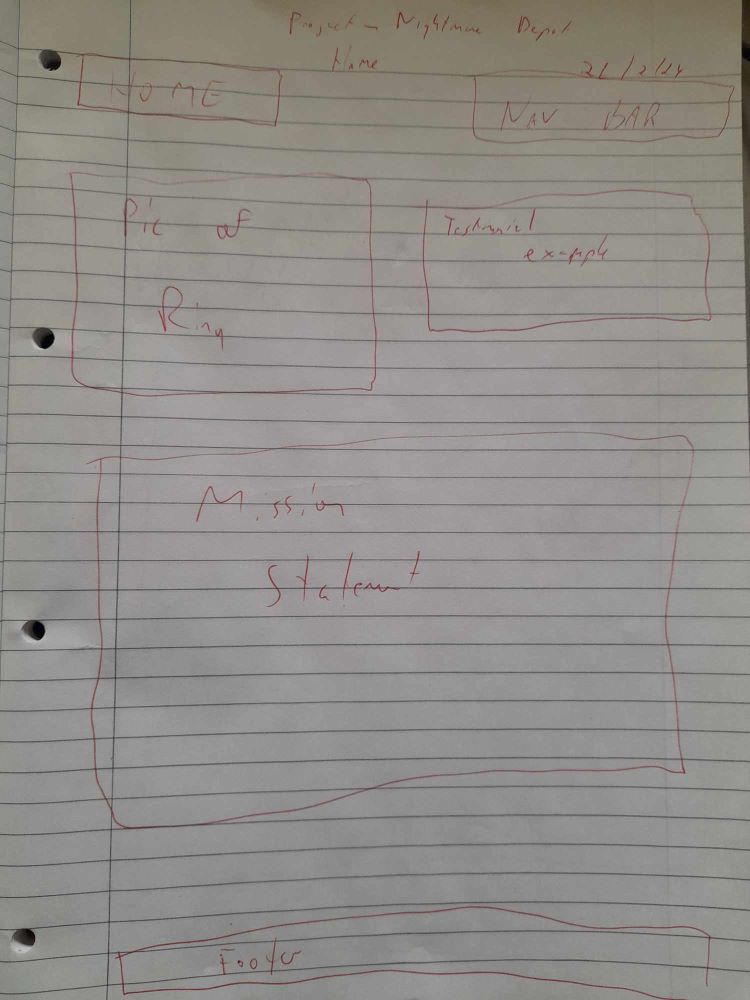 Project - Nightmare Depot
Home
21/2/24
HOME
NAV BAR
Pic of
Ring
Testimonial
example
Mission
Statement
Footer